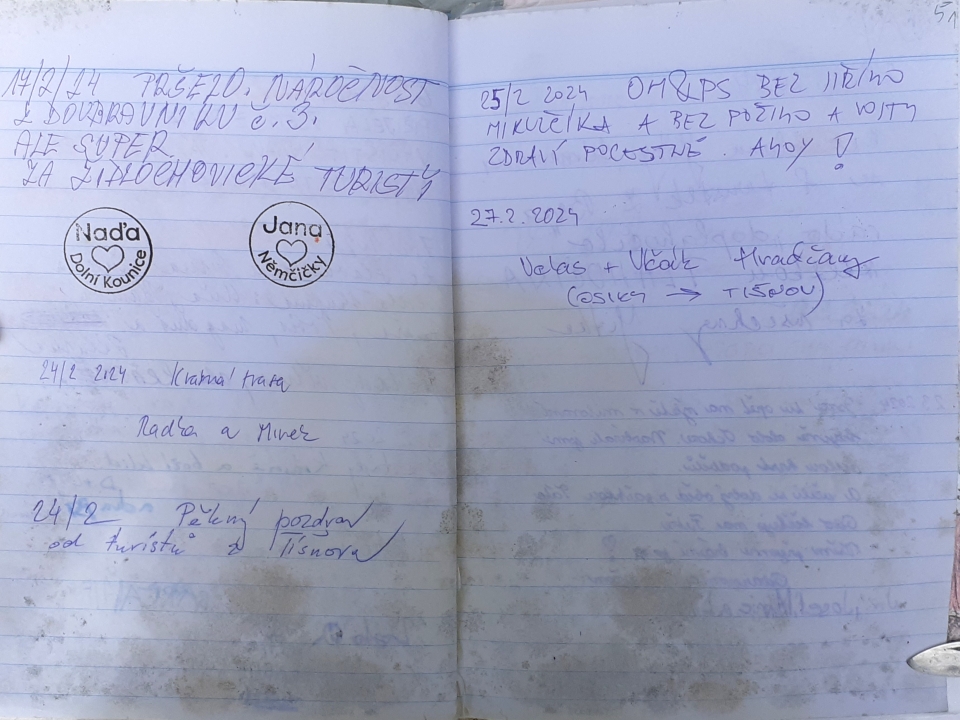 17/2/24 PŘŠEJO. NÁROČNOST
Z DOUBRAVNÍKU č. 3.
ALE SUPER
ZA ŽIDLOCHOVICKÉ TURISTY
Naďa
Dolní Kounice
Jana
Němčičky
24/2 2024 Krásná trasa
Radka a Mirek
24/2 Pěkný pozdrav
od turistů z Tišnova
51
25/2 2024 OH&PS BEZ JIŘÍHO
MIKULČÍKA A BEZ POŽIHO A VOJTY
ZDRAVÍ POCESTNÉ. AHOY!
27.2.2024
+ Hradčany
(OSIKY → TIŠNOV)